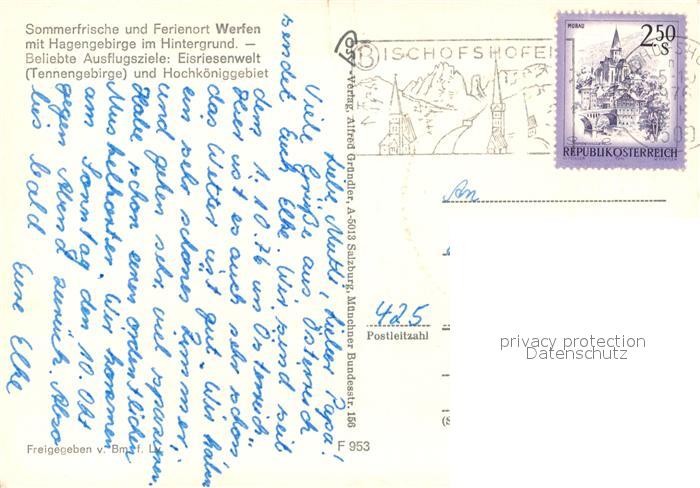 Sommerfrische und Ferienort Werfen
mit Hagengebirge im Hintergrund. —
Beliebte Ausflugsziele: Eisriesenwelt
(Tennengebirge) und Hochköniggebiet
Liebe Mutti, lieber Papa!
Viele Grüße aus Österreich
sendet Euch Elke. Wir sind seit
dem 1.10.76 in Österreich
Hier ist es auch sehr schön
das Wetter ist gut. Wir haben
ein sehr schönes Zimmer,
und gehen sehr viel spazieren.
Habe schon einen ordentlichen
Muskelkater. Wir kommen
am Sonntag, den 10. Okt
gegen Abend zurück. Also
bis bald Eure Elke
Freigegeben v.
F 953
-Verlag, Alfred Gründler, A-5013 Salzburg, Münchner Bundesstr. 156
BISCHOFSHOFEN
MURAU
2.50
S
REPUBLIK ÖSTERREICH
An
425
Postleitzahl
privacy protection
Datenschutz